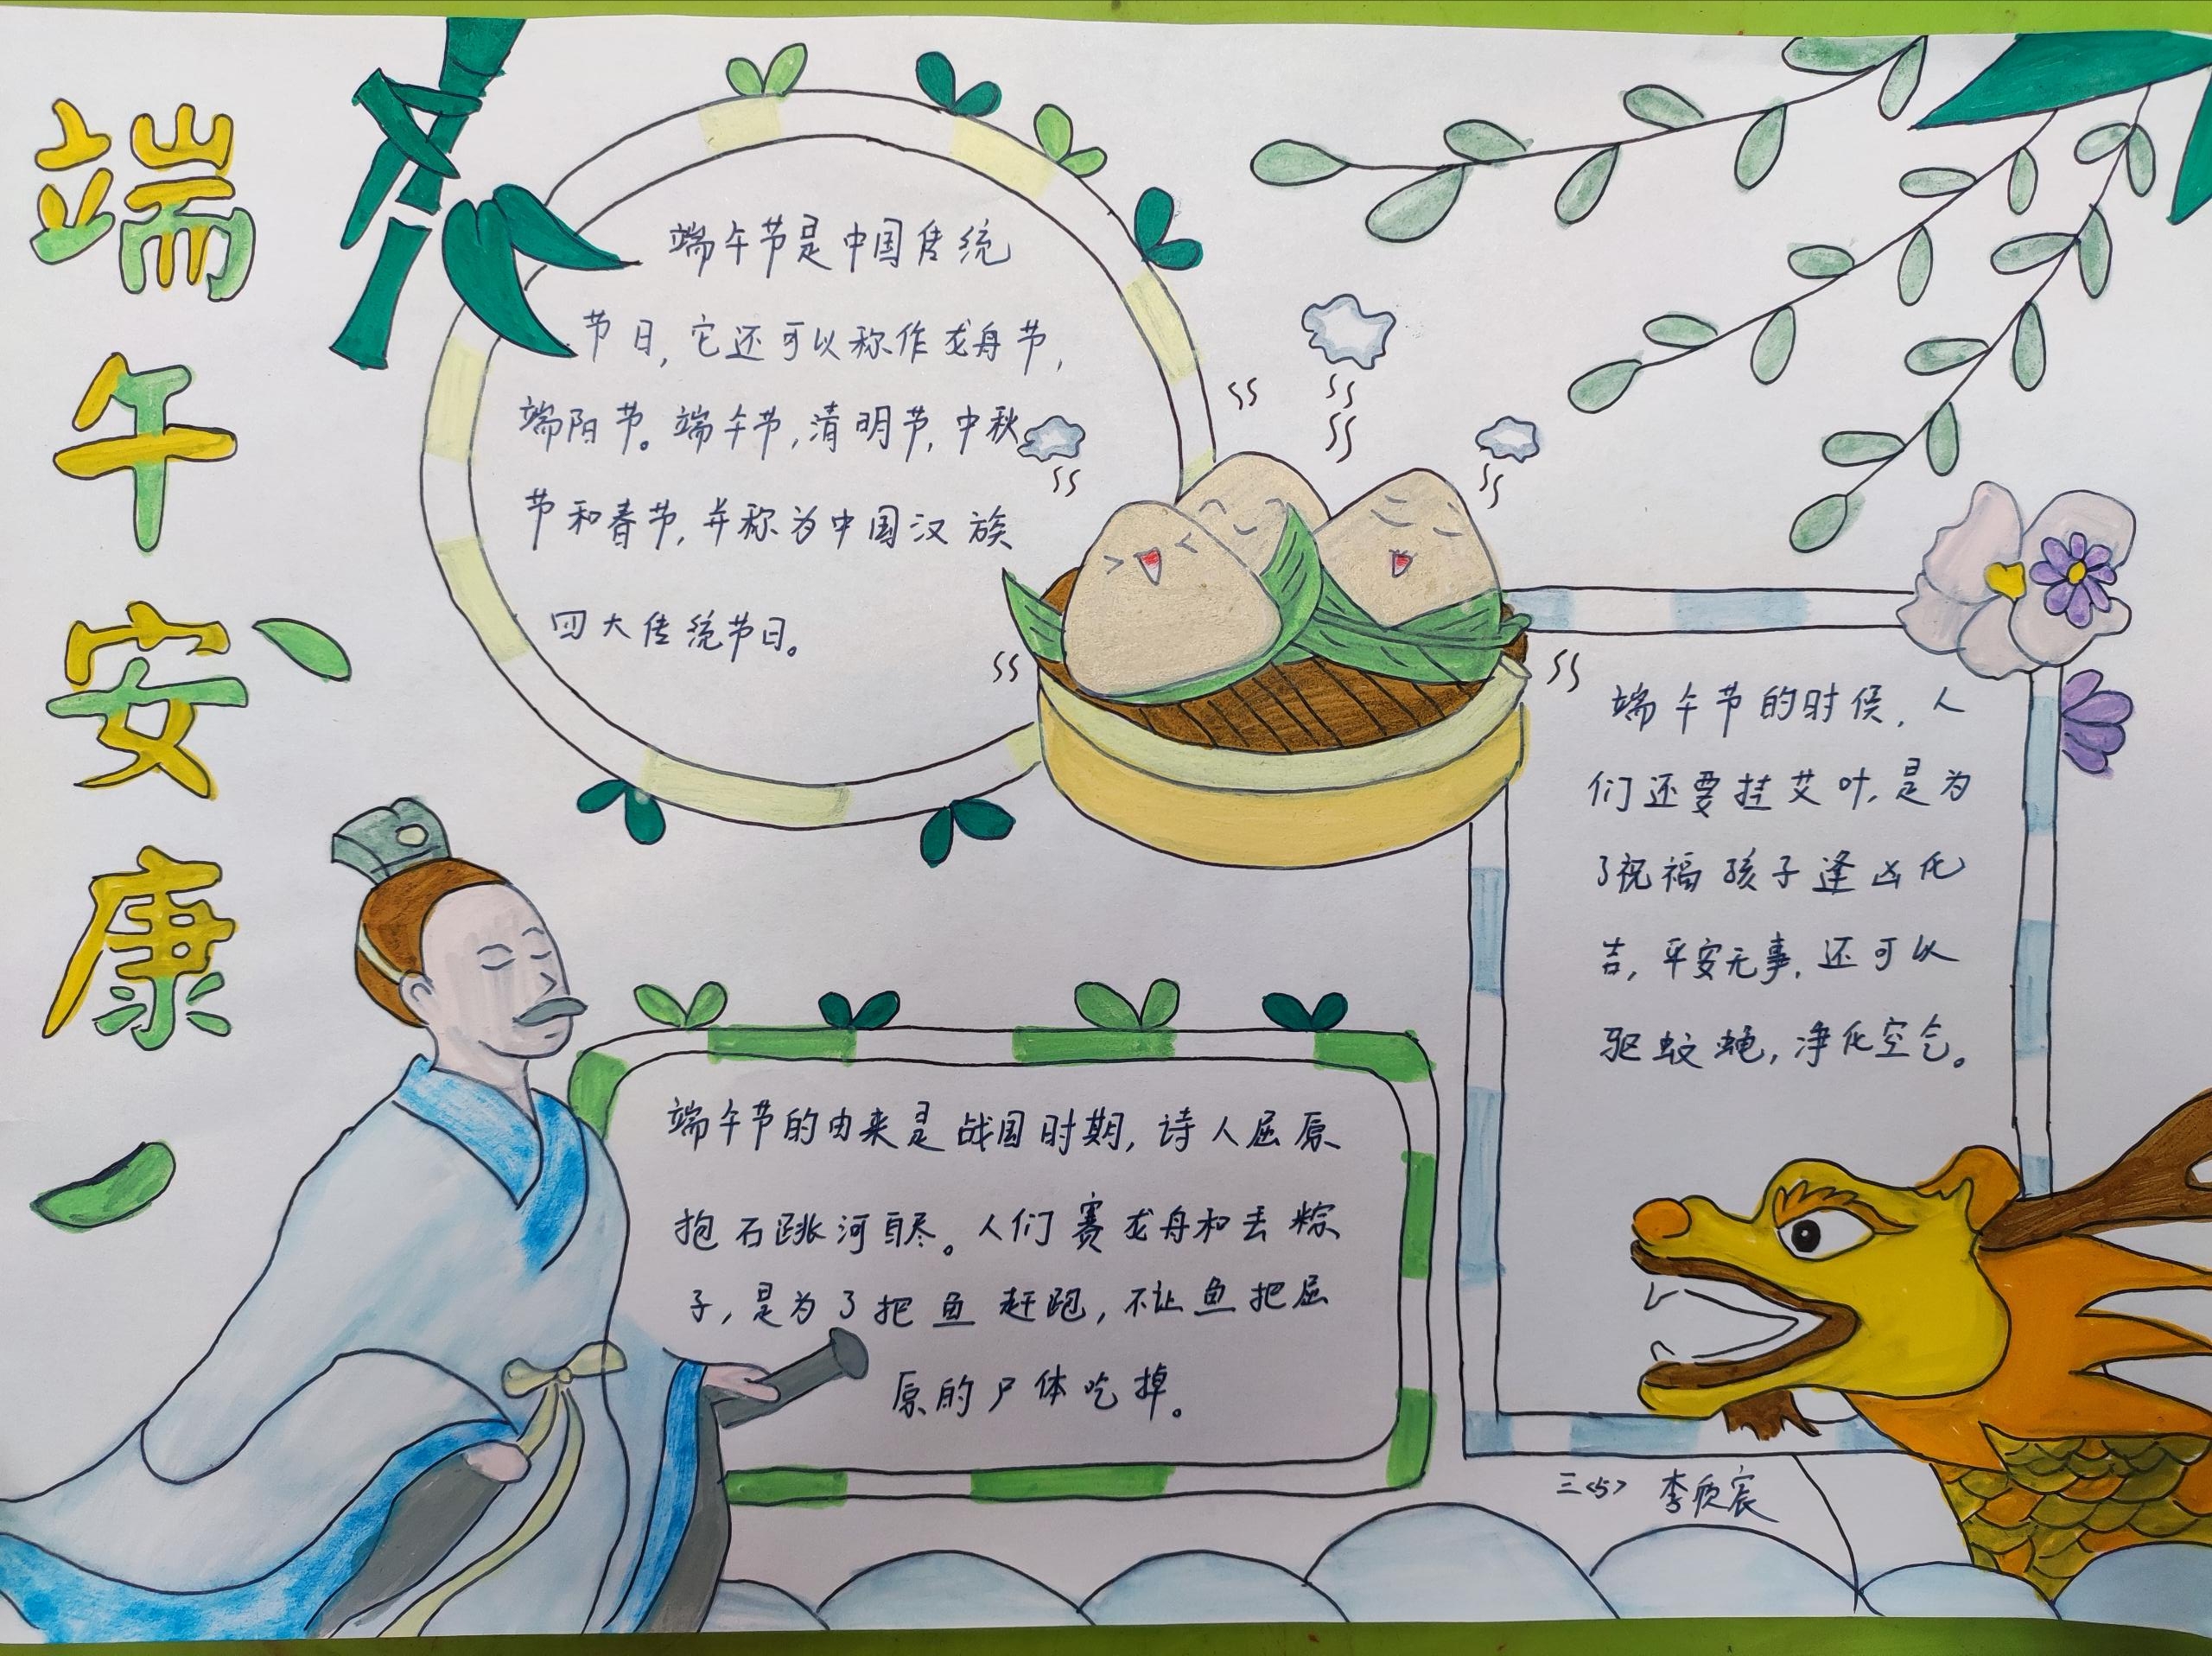 端午安康
端午节是中国传统
节日,它还可以称作龙舟节,
端阳节。端午节,清明节,中秋
节和春节,并称为中国汉族
四大传统节日。
端午节的时候,人
们还要挂艾叶,是为
了祝福孩子逢凶化
吉,平安无事,还可以
驱蚊蝇,净化空气。
端午节的由来是战国时期,诗人屈原
抱石跳河自尽。人们赛龙舟和丢粽
子,是为了把鱼赶跑,不让鱼把屈
原的尸体吃掉。
三<5> 李